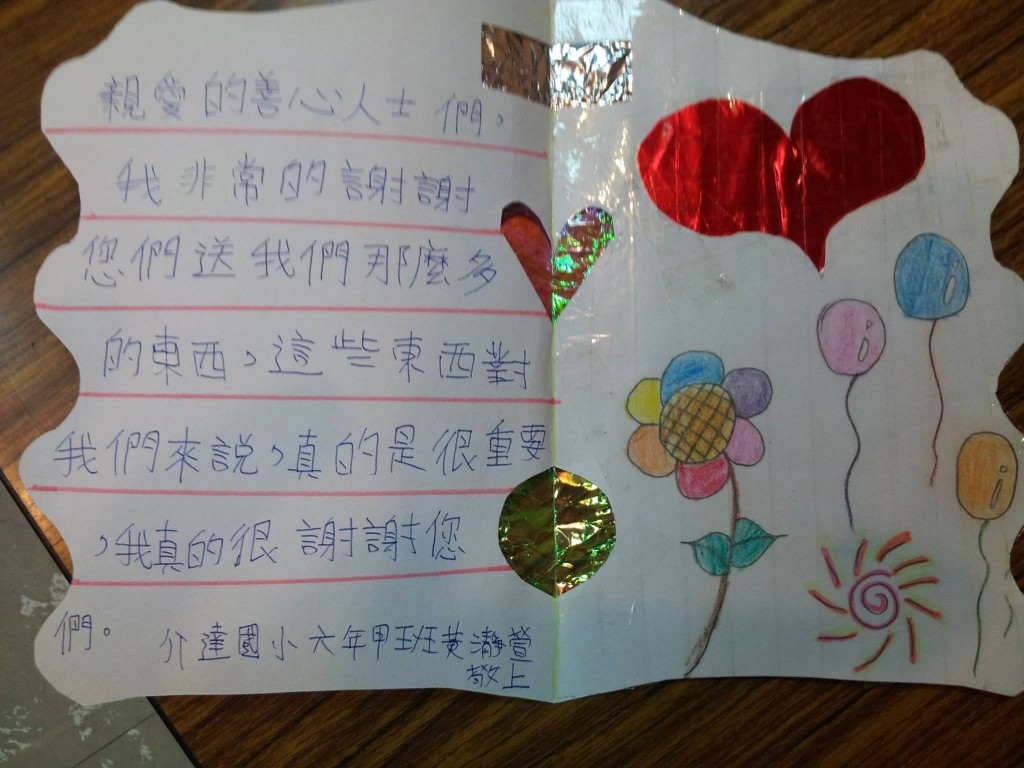 親愛的善心人士們，
我非常的謝謝
您們送我們那麼多
的東西，這些東西對
我們來說，真的是很重要
，我真的很謝謝您
們。
介達國小六年甲班黃瀞萱
敬上